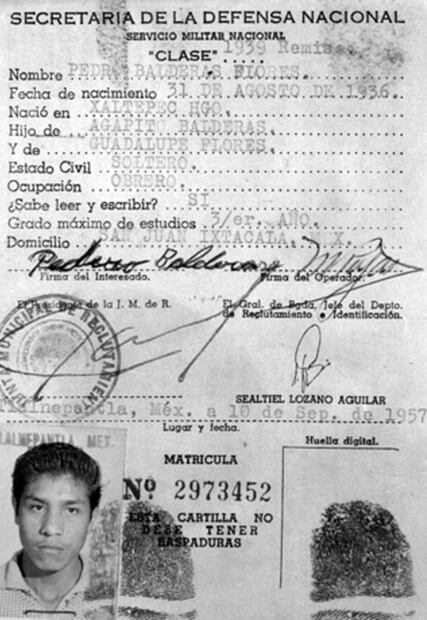 SECRETARIA DE LA DEFENSA NACIONAL
SERVICIO MILITAR NACIONAL
"CLASE" 1939 Remiso.
Nombre PEDRO BALDERAS FLORES.
Fecha de nacimiento 31 DE AGOSTO DE 1936.
Nació en XALTEPEC HGO.
Hijo de AGAPITO BALDERAS.
Y de GUADALUPE FLORES.
Estado Civil SOLTERO.
Ocupación OBRERO.
¿Sabe leer y escribir? SI
Grado máximo de estudios 3/er. AÑO.
Domicilio SAN JUAN IXTACALA, MEX.
Firma del Interesado. Firma del Operador.
El Presidente de la J. M. de R. El Gral. de Bgda, Jefe del Depto.
de Reclutamiento e Identificación.
MUNICIPAL DE RECLUTAMIENTO
SEALTIEL LOZANO AGUILAR
Tlalnepantla, Méx. a 10 de Sep. de 1957
Lugar y fecha.
Huella digital.
TLALNEPANTLA, MEX.
MATRICULA
Nº 2973452
ESTA CARTILLA NO
DEBE TENER
RASPADURAS